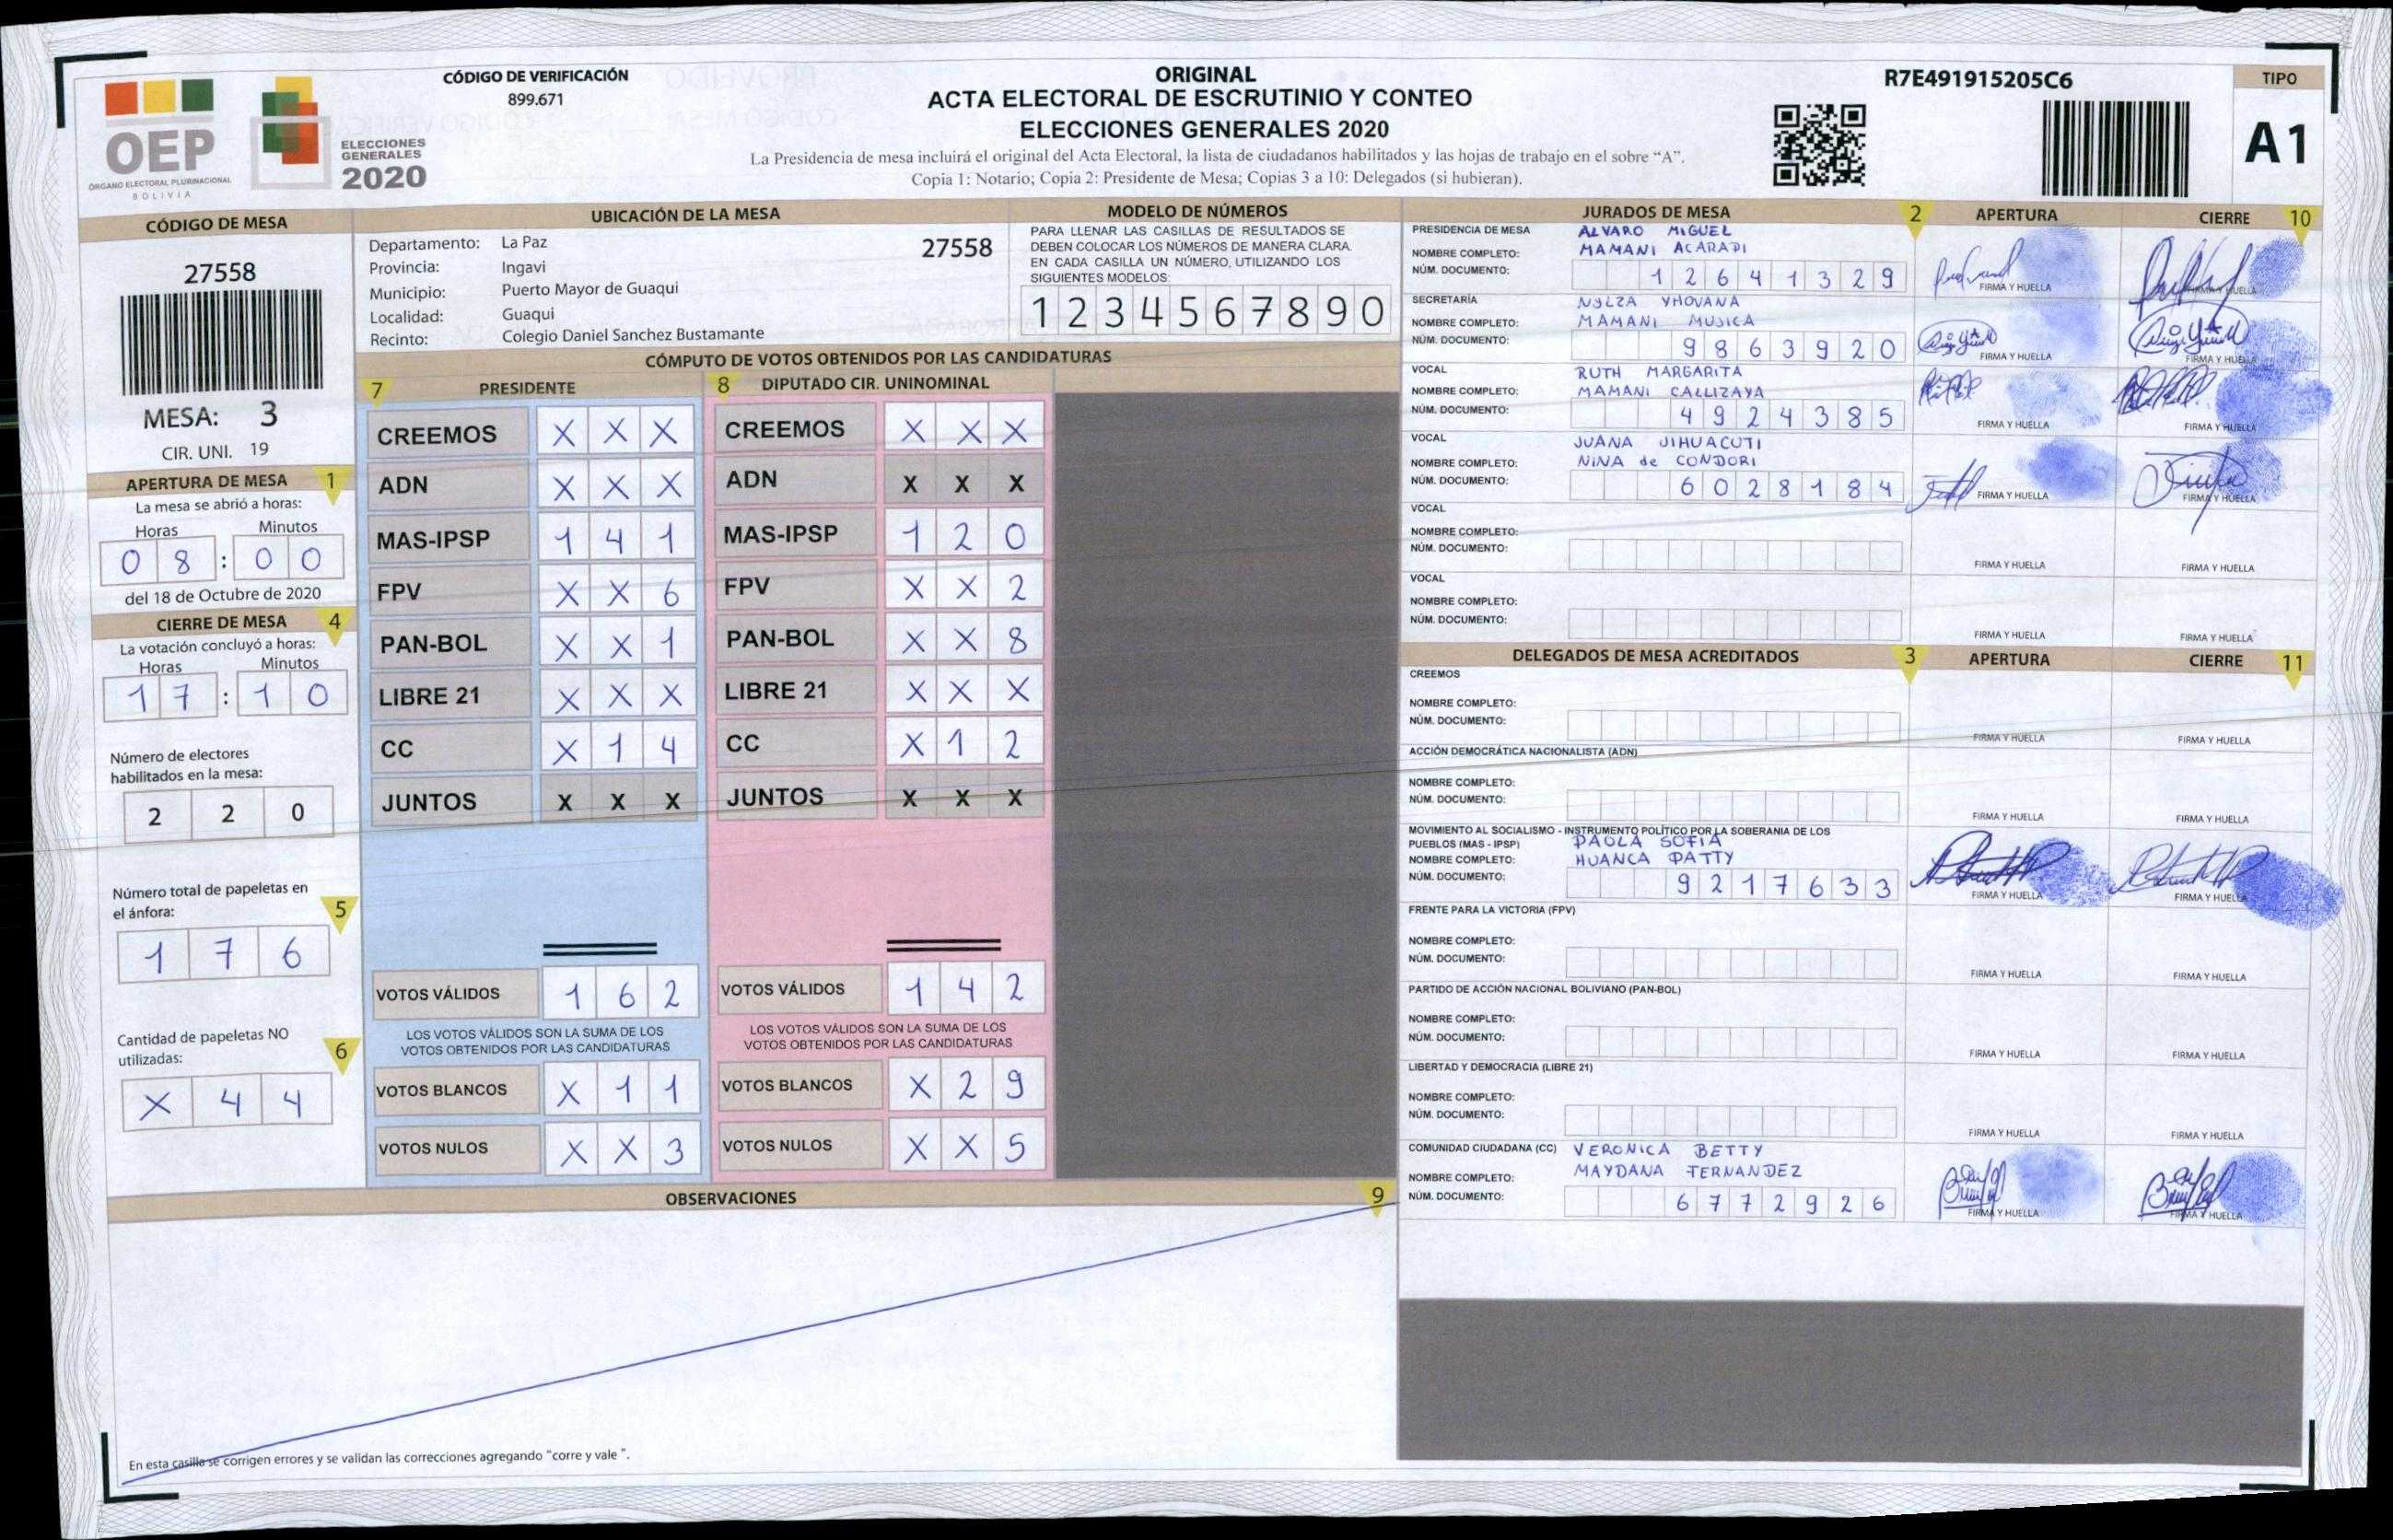 OEP
ÓRGANO ELECTORAL PLURINACIONAL
BOLIVIA
ELECCIONES
GENERALES
2020
CÓDIGO DE VERIFICACIÓN
899.671
ORIGINAL
ACTA ELECTORAL DE ESCRUTINIO Y CONTEO
ELECCIONES GENERALES 2020
La Presidencia de mesa incluirá el original del Acta Electoral, la lista de ciudadanos habilitados y las hojas de trabajo en el sobre “A”.
Copia 1: Notario; Copia 2: Presidente de Mesa; Copias 3 a 10: Delegados (si hubieran).
R7E491915205C6
TIPO
A1
CÓDIGO DE MESA
27558
MESA: 3
CIR. UNI. 19
APERTURA DE MESA 1
La mesa se abrió a horas:
Horas Minutos
0 8 : 0 0
del 18 de Octubre de 2020
CIERRE DE MESA 4
La votación concluyó a horas:
Horas Minutos
1 7 : 1 0
Número de electores
habilitados en la mesa:
2 2 0
Número total de papeletas en
el ánfora: 5
1 7 6
Cantidad de papeletas NO
utilizadas: 6
X 4 4
UBICACIÓN DE LA MESA
Departamento: La Paz 27558
Provincia: Ingavi
Municipio: Puerto Mayor de Guaqui
Localidad: Guaqui
Recinto: Colegio Daniel Sanchez Bustamante
MODELO DE NÚMEROS
PARA LLENAR LAS CASILLAS DE RESULTADOS SE
DEBEN COLOCAR LOS NÚMEROS DE MANERA CLARA.
EN CADA CASILLA UN NÚMERO, UTILIZANDO LOS
SIGUIENTES MODELOS:
1 2 3 4 5 6 7 8 9 0
CÓMPUTO DE VOTOS OBTENIDOS POR LAS CANDIDATURAS
7 PRESIDENTE
CREEMOS X X X
ADN X X X
MAS-IPSP 1 4 1
FPV X X 6
PAN-BOL X X 1
LIBRE 21 X X X
CC X 1 4
JUNTOS X X X
VOTOS VÁLIDOS 1 6 2
LOS VOTOS VÁLIDOS SON LA SUMA DE LOS
VOTOS OBTENIDOS POR LAS CANDIDATURAS
VOTOS BLANCOS X 1 1
VOTOS NULOS X X 3
8 DIPUTADO CIR. UNINOMINAL
CREEMOS X X X
ADN X X X
MAS-IPSP 1 2 0
FPV X X 2
PAN-BOL X X 8
LIBRE 21 X X X
CC X 1 2
JUNTOS X X X
VOTOS VÁLIDOS 1 4 2
LOS VOTOS VÁLIDOS SON LA SUMA DE LOS
VOTOS OBTENIDOS POR LAS CANDIDATURAS
VOTOS BLANCOS X 2 9
VOTOS NULOS X X 5
OBSERVACIONES 9
En esta casilla se corrigen errores y se validan las correcciones agregando "corre y vale ".
JURADOS DE MESA 2 APERTURA CIERRE 10
PRESIDENCIA DE MESA ALVARO MIGUEL
NOMBRE COMPLETO: MAMANI ACARAPI
NÚM. DOCUMENTO: 1 2 6 4 1 3 2 9 FIRMA Y HUELLA FIRMA Y HUELLA
SECRETARÍA NYLZA YHOVANA
NOMBRE COMPLETO: MAMANI MUJICA
NÚM. DOCUMENTO: 9 8 6 3 9 2 0 FIRMA Y HUELLA FIRMA Y HUELLA
VOCAL RUTH MARGARITA
NOMBRE COMPLETO: MAMANI CALLIZAYA
NÚM. DOCUMENTO: 4 9 2 4 3 8 5 FIRMA Y HUELLA FIRMA Y HUELLA
VOCAL JUANA JIHUACUTI
NOMBRE COMPLETO: NINA de CONDORI
NÚM. DOCUMENTO: 6 0 2 8 1 8 4 FIRMA Y HUELLA FIRMA Y HUELLA
VOCAL
NOMBRE COMPLETO:
NÚM. DOCUMENTO: FIRMA Y HUELLA FIRMA Y HUELLA
VOCAL
NOMBRE COMPLETO:
NÚM. DOCUMENTO: FIRMA Y HUELLA FIRMA Y HUELLA
DELEGADOS DE MESA ACREDITADOS 3 APERTURA CIERRE 11
CREEMOS
NOMBRE COMPLETO:
NÚM. DOCUMENTO: FIRMA Y HUELLA FIRMA Y HUELLA
ACCIÓN DEMOCRÁTICA NACIONALISTA (ADN)
NOMBRE COMPLETO:
NÚM. DOCUMENTO: FIRMA Y HUELLA FIRMA Y HUELLA
MOVIMIENTO AL SOCIALISMO - INSTRUMENTO POLÍTICO POR LA SOBERANIA DE LOS
PUEBLOS (MAS - IPSP) PAOLA SOFIA
NOMBRE COMPLETO: HUANCA PATTY
NÚM. DOCUMENTO: 9 2 1 7 6 3 3 FIRMA Y HUELLA FIRMA Y HUELLA
FRENTE PARA LA VICTORIA (FPV)
NOMBRE COMPLETO:
NÚM. DOCUMENTO: FIRMA Y HUELLA FIRMA Y HUELLA
PARTIDO DE ACCIÓN NACIONAL BOLIVIANO (PAN-BOL)
NOMBRE COMPLETO:
NÚM. DOCUMENTO: FIRMA Y HUELLA FIRMA Y HUELLA
LIBERTAD Y DEMOCRACIA (LIBRE 21)
NOMBRE COMPLETO:
NÚM. DOCUMENTO: FIRMA Y HUELLA FIRMA Y HUELLA
COMUNIDAD CIUDADANA (CC) VERONICA BETTY
NOMBRE COMPLETO: MAYDANA FERNANDEZ
NÚM. DOCUMENTO: 6 7 7 2 9 2 6 FIRMA Y HUELLA FIRMA Y HUELLA